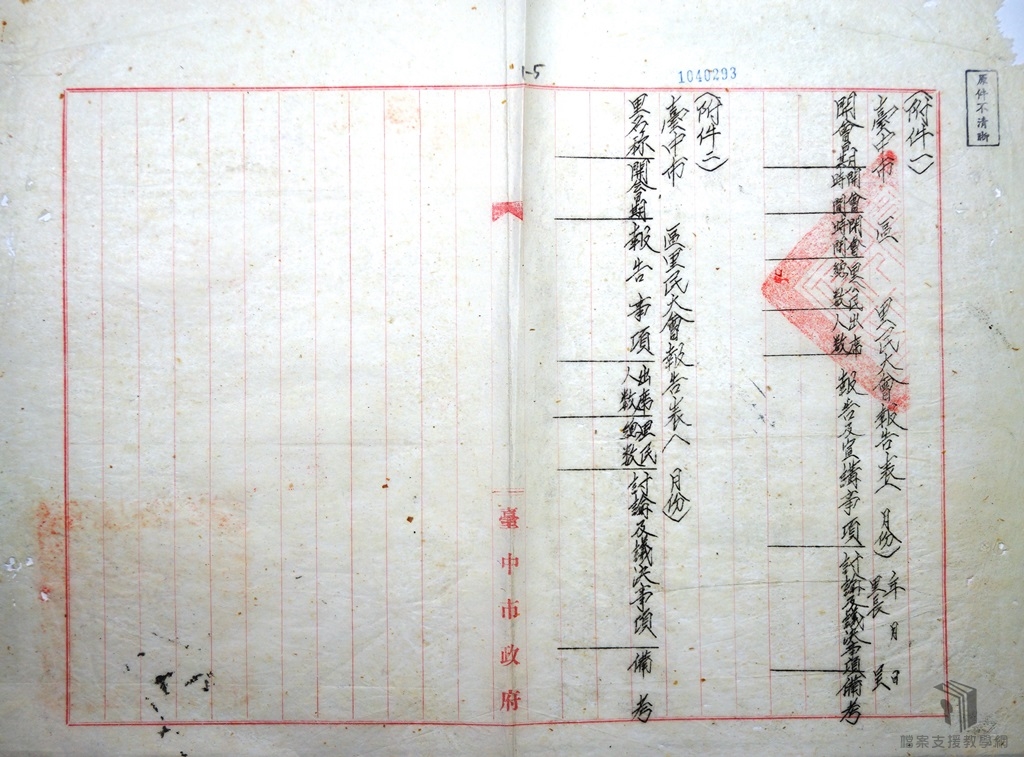 原件不清晰
1040293
1-5
(附件一)
臺中市 區 里民大會報告表( 月份) 年 月 日
里長 呈
開會日期
開會時間
閉會時間
里公民總數
出席人數
報告及宣講事項
討論及議決事項
備考
(附件二)
臺中市 區里民大會報告表( 月份)
里名称
開會日期
報告事項
出席人數
里民總數
討論及議決事項
備考
臺中市政府
檔案支援教學網